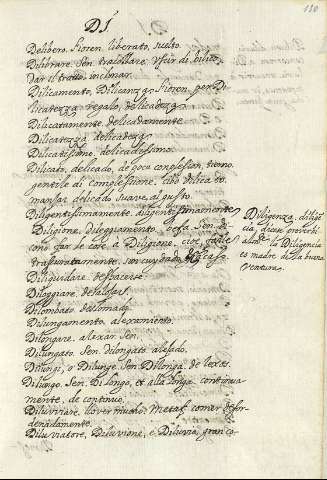 110
DI
Delibero. Fioren. liberato, suelto.
Dilibrare. Sen. trabollare. UsCir di bilico,
dar il tratto, inclinar.
Dilicamento, Dilicanza, Fioren. per Di
licatezza regalo, delicadeza.
Dilicatamente. delicadamente.
Dilicatezza. delicadeza
Dilicatissimo. delicadissimo.
Dilicato, delicado, de poca complesion, tierno.
gentile di complessione. cibo dilicato.
manjar delicado suave al gusto.
Diligentissimamente. diligentissimamente
Diligione, dileggiamento, beffa. Sen.
trascuratamente, sen cuydado
Diliguidare. deshacerse
Dileggiare. desfaldar
Dilombato. deslomado.
Dilungamento. alexamiento.
Dilongare. alexar. Sen.
Dilungato. Sen. dilongato alejado.
Dilungi, o Dilunge Sen. Di longa. de lexos.
Dilungo. Sen. Di longo, et alla longa. continua
mente, de continuo.
Diluviare. llover mucho. Metaf. comer desor-
denadamente.
Diluviatore, Diluvione, e Diluvia, gran co-
Diligenza, dilige
cia, dicese proverbi
la Diligencia
es madre de la buena
ventura.